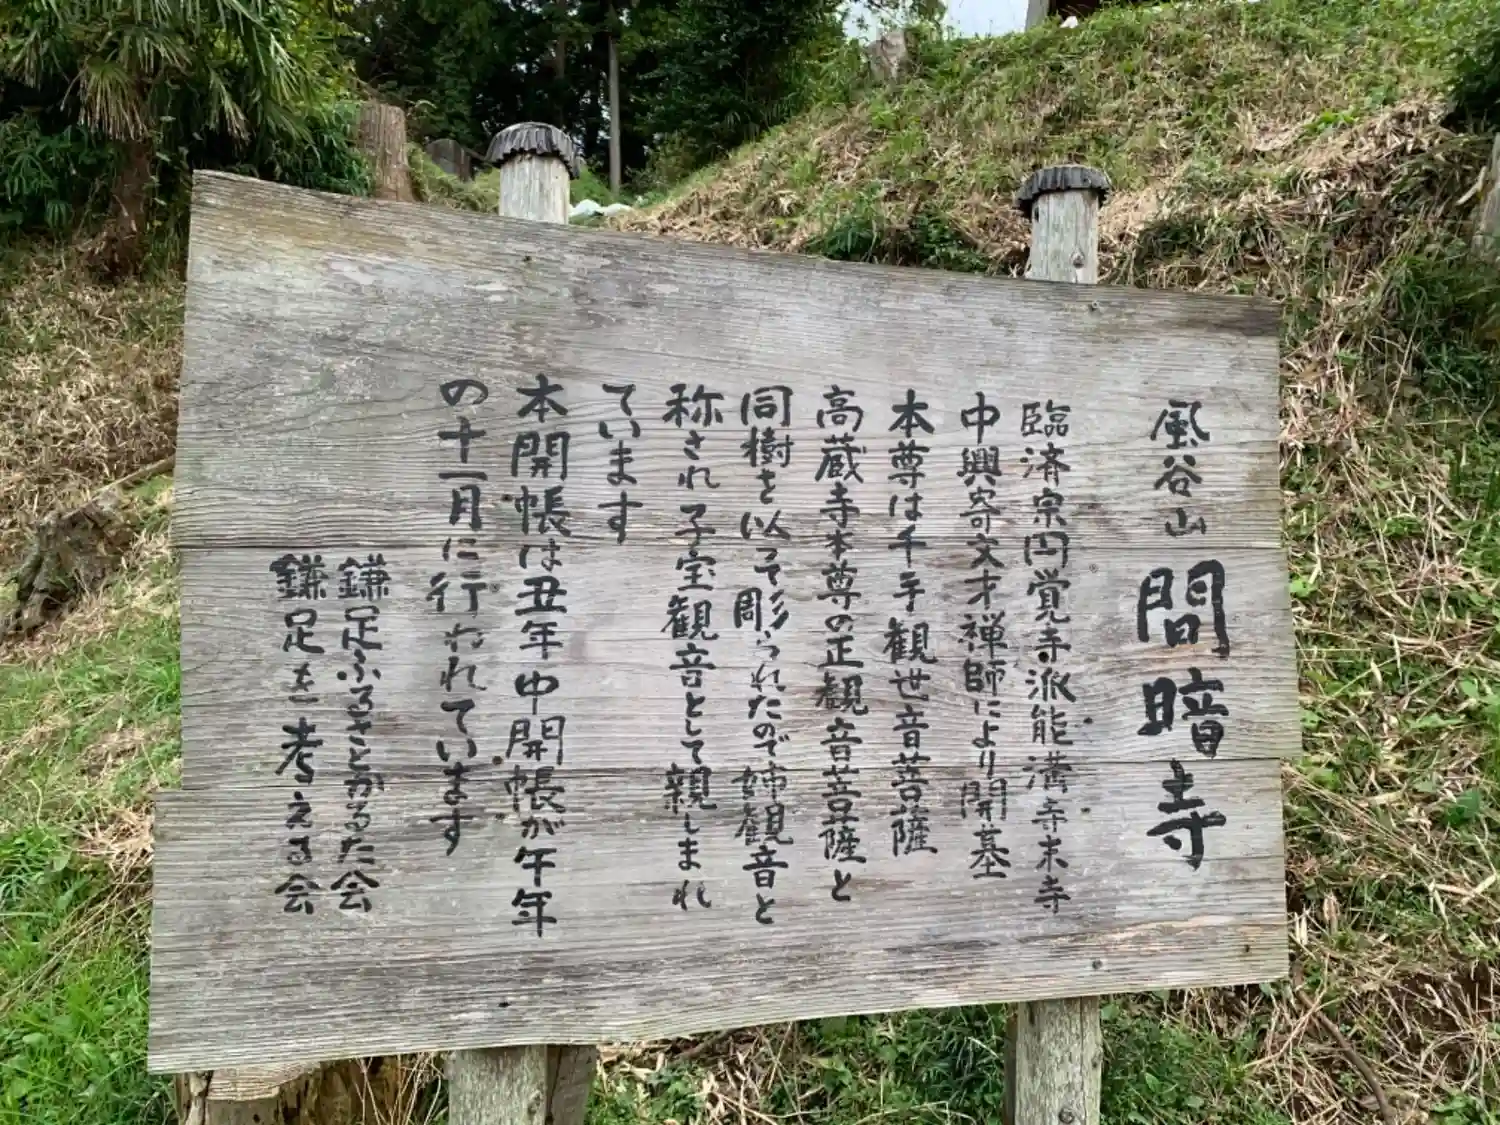 風谷山 間暗寺
臨済宗円覚寺派能満寺末寺
中興寄文才禅師により開基
本尊は千手観世音菩薩
高蔵寺本尊の正観音菩薩と
同樹を以て彫られたので姉観音と
称され子宝観音として親しまれ
ています
本開帳は丑年中開帳が午年
の十一月に行われています
鎌足ふるさとかるた会
鎌足を考える会